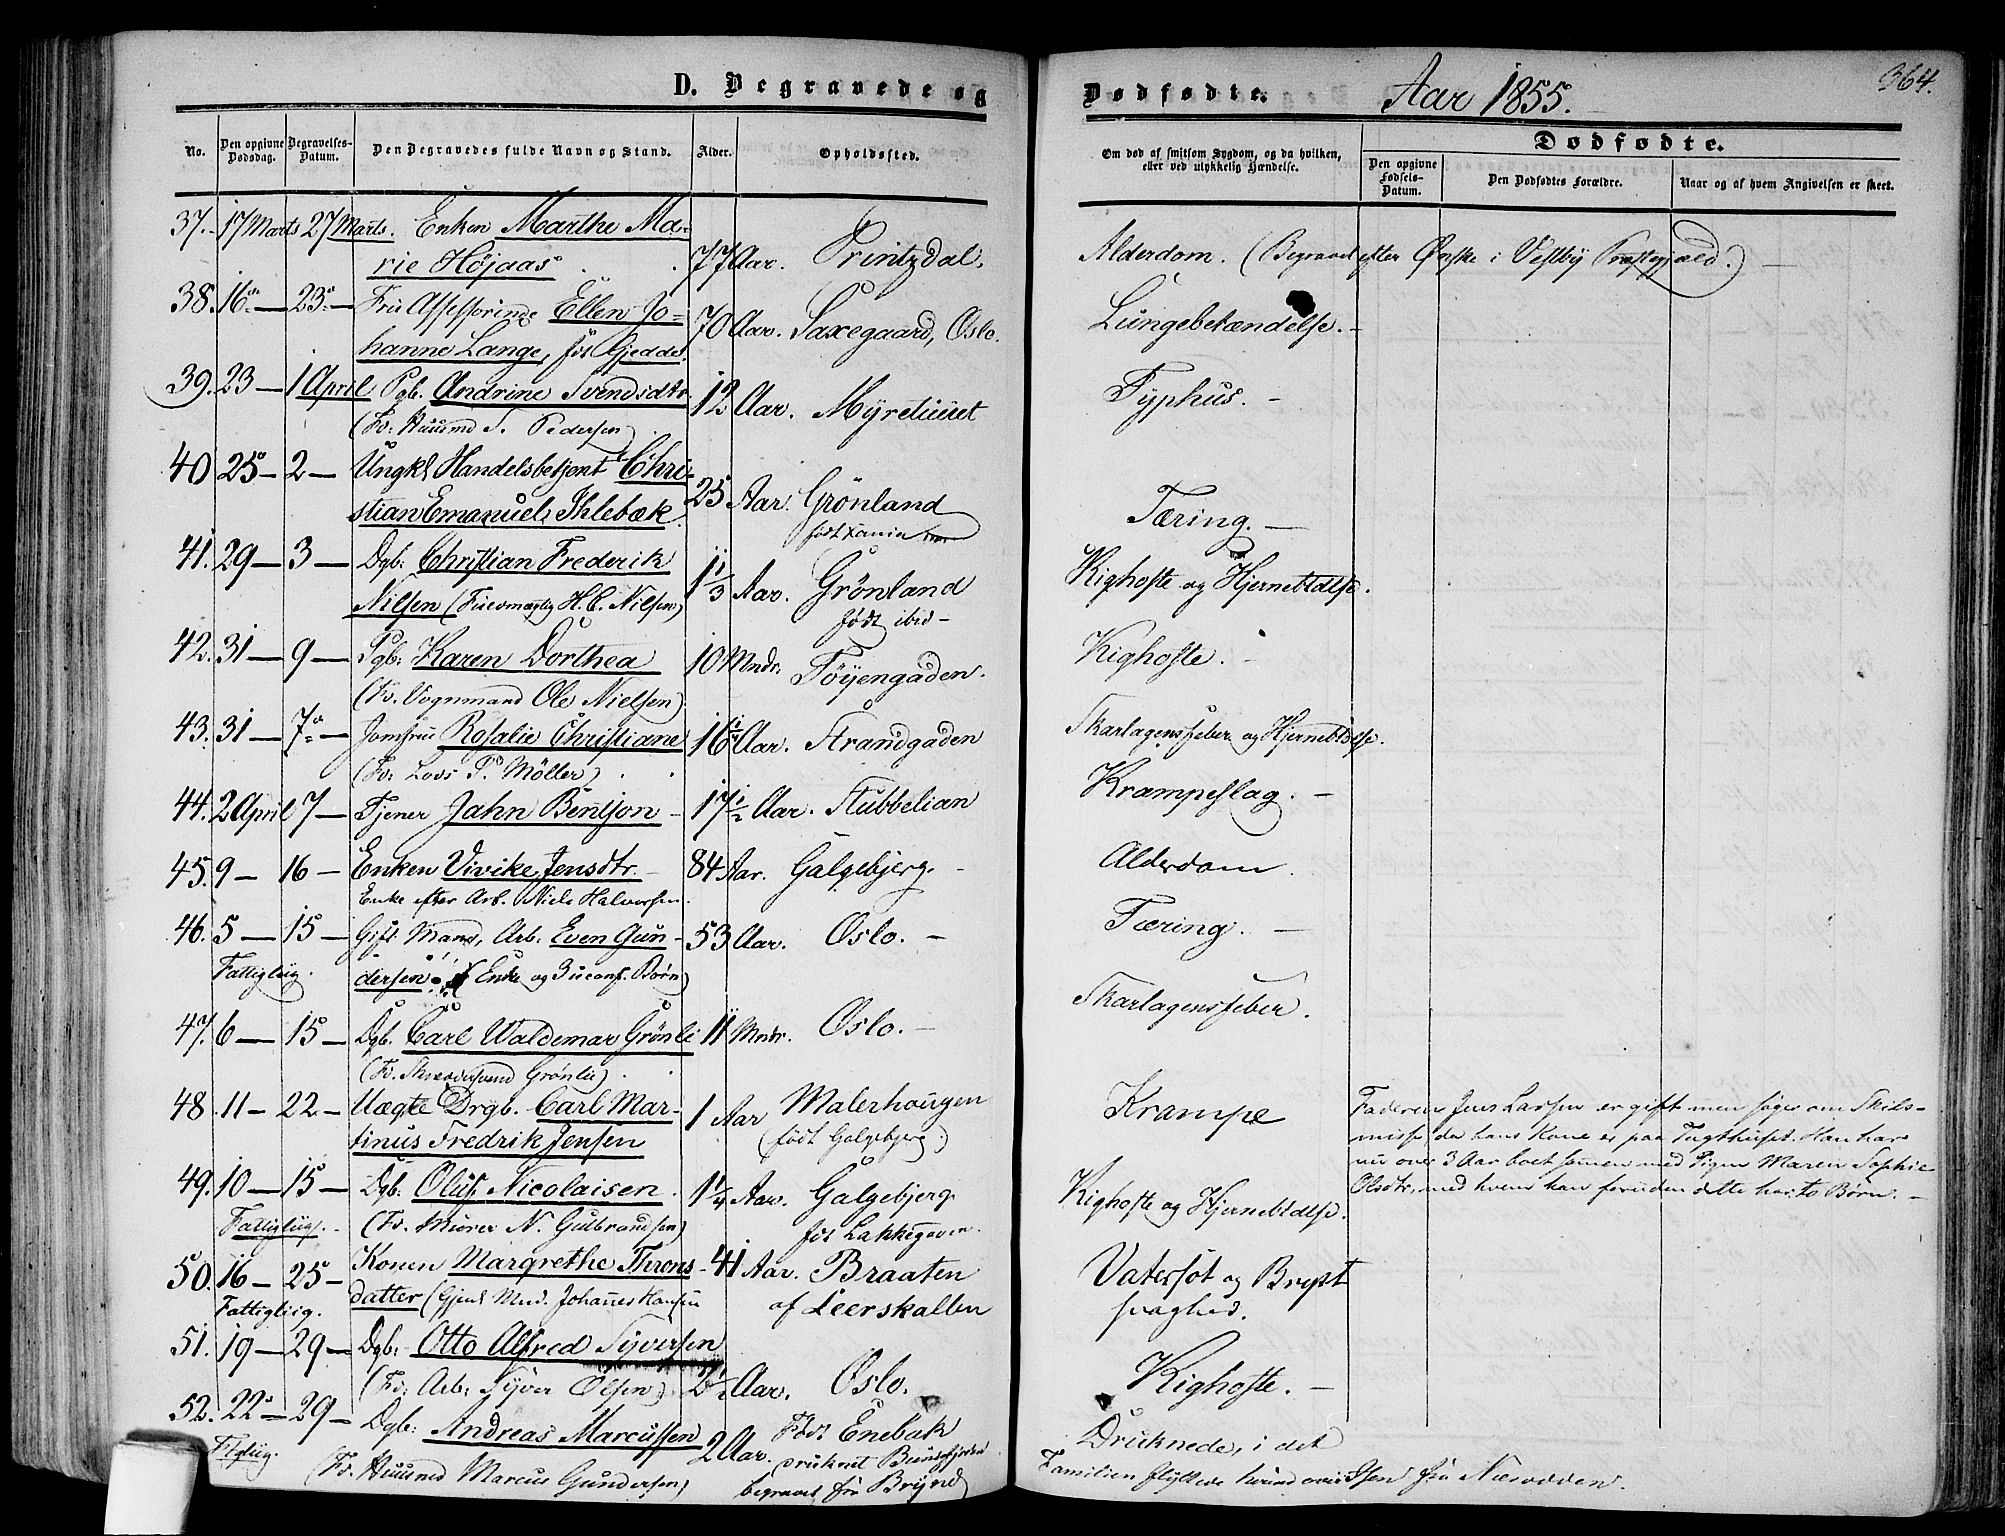 D. Begravede og
Dødfødte.
Aar 1855.
364.
No.
Den opgivne Dødsdag.
Begravelses-Datum.
Den Begravedes fulde Navn og Stand.
Alder.
Opholdssted.
Om død af smitsom Sygdom, og da hvilken,
eller ved ulykkelig Hændelse.
Dødfødte.
Den opgivne Fødsels-Datum.
Den Dødfødtes Forældre.
Naar og af hvem Angivelsen er skeet.
37. 17 Marts 27 Marts. Enken Marthe Ma-
rie Höjaas 77 Aar. Printzdal. Alderdom. (Begravet efter Ønske i Vestby Præstegjæld.) —
38. 16 — 23 — Fru Assessorinde Ellen Jo-
hanne Lange, föt Gjedde. 70 Aar. Saxegaard, Oslo. Lungebetændelse. —
39. 23 — 1 April Pgb. Andrine Svendsdtr 12 Aar. Myretuuet Typhus. —
(Fr. Huusmd S. Pedersen)
40 25 — 2 — Ungkl Handelsbetjent Chri-
stian Emanuel Ihlebæk. 25 Aar. Grönland Tæring. —
født Xania
41. 29 — 3 — Dgb: Christian Frederik
Nilsen (Fuldmægtig H. C. Nilsen) 1 1/3 Aar. Grönland Kighoste og Hjernebtdlse.
født ibid —
42. 31 — 9 — Pgb: Karen Dorthea 10 Mndr. Töyengaden. Kighoste. —
(Fr. Vognmand Ole Nielsen)
43. 31 — 7 — Jomfru Rosalie Christiane 16 Aar. Strandgaden Skarlagensfeber og Hjernebtdlse.
(Fr: Lods P. Möller)
44. 2 April 7 — Tjener Jahn Bentson 17 1/2 Aar. Stubbelian Krampeslag. —
45. 9 — 16 — Enken Vivike Jensdtr. 84 Aar. Galgebjerg. Alderdom.
Enke efter Arb. Niels Halvorsen.
46. 5 — 15 — Gift Mand, Arb. Even Gun- 53 Aar. Oslo. — Tæring. —
Fattigliig. dersen. (Enke og 3 uconf. Børn)
47. 6 — 15 — Dgb. Carl Waldemar Grönli 11 Mndr. Oslo. — Skarlagensfeber.
(Fr. Skræddersvend Grönlie)
48 11 — 22 — Uægte Drgb. Carl Mar-
tinus Fredrik Jensen 1 Aar Malerhougen Krampe
(født Galgebjerg.)
Faderen Jens Larsen er gift men søger om Skils-
misse, da hans Kone er paa Tugthuset. Han har
nu over 3 Aar boet samen med Pigen Maren Sophie
Olsdtr, med hvem han foruden dette har to Børn. —
49. 10 — 15 — Dgb: Oluf Nicolaisen. 1 1/4 Aar. Galgebjerg. Kighoste og Hjernebtdlse.
Fattigliig. — (Fr. Murer N. Gulbrandsen) föt Lakkegaden.
50. 16 — 25 — Konen Margrethe Throns- 41 Aar. Braaten Vatersot og Bryst
Fattigliig. datter (Gjenl. Md. Johannes Hansen af Leerskallen svaghed.
51. 19 — 29 — Dgb: Otto Alfred Syversen
(Fr. Arb: Syver Olsen) Aar. Oslo. Kighoste. —
52. 22 — 29 — Dgb: Andreas Marcussen 2 Aar. Født Enebak Druknede, i det
(Fr. Huusmd Marcus Gundersen) druknet Bundefjorden Familien flyttede herind over Isen fra Næsodden.
begravet fra Bryn